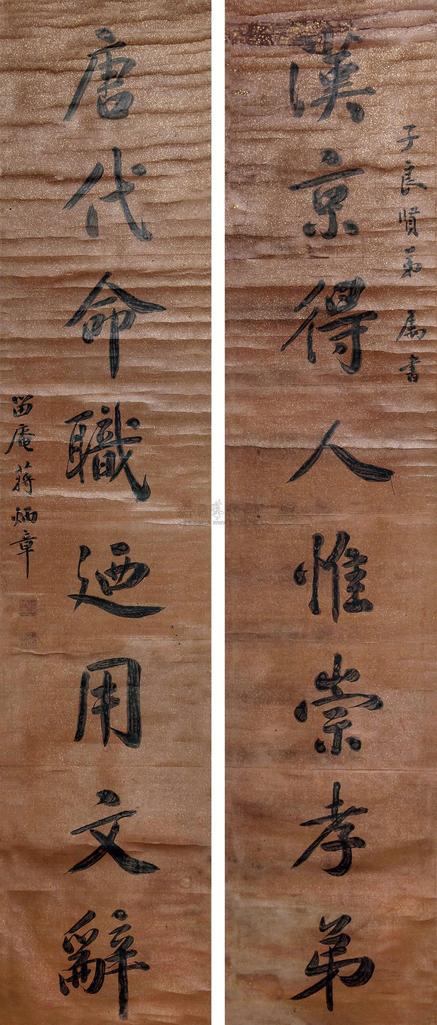 漢京得人惟崇孝弟
子良賢弟属書
唐代命職迺用文辭
留庵蒋炳章